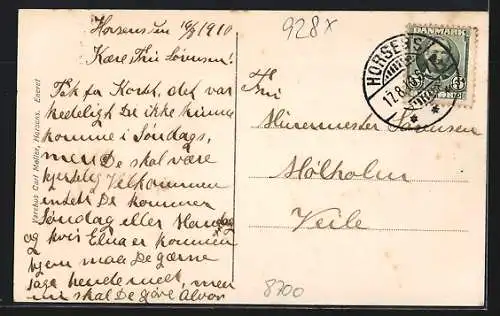 Horsens den 16/8 1910
Kære Fru Sørensen!
Tak for Kortet, det var
kedeligt De ikke kunne
komme i Søndags,
men De skal være
hjertelig Velkommen
enten De kommer
Søndag eller Mandag
og hvis Elna er kommen
hjem maa De gærne
tage hende med, men
nu skal De gøre Alvor
928x
DANMARK
HORSENS
17.8.10
Fru
Murermester Sørensen
Mølholm
Vejle
8700
Varehus Carl Møller, Horsens. Eneret